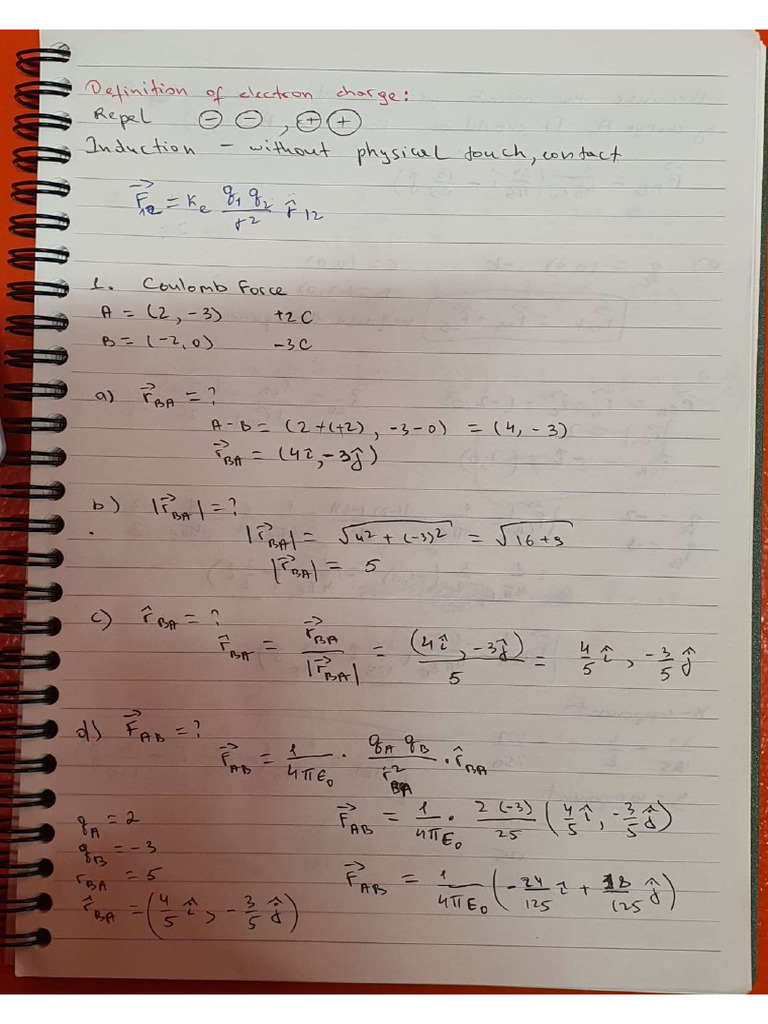 Definition of electron charge:
Repel ⊖ ⊖ , ⊕ ⊕
Induction – without physical touch, contact
F⃗₁₂ = Kₑ q₁ q₂ / r² r̂₁₂
1. Coulomb Force
A = (2, -3) +2C
B = (-2, 0) -3C
a) r⃗_BA = ?
A-B = (2+(+2), -3-0) = (4, -3)
r⃗_BA = (4î, -3ĵ)
b) |r⃗_BA| = ?
|r⃗_BA| = √(4² + (-3)²) = √(16+9)
|r⃗_BA| = 5
c) r̂_BA = ?
r̂_BA = r⃗_BA / |r⃗_BA| = (4î, -3ĵ) / 5 = 4/5 î, -3/5 ĵ
d) F⃗_AB = ?
F⃗_AB = 1/(4πε₀) · q_A q_B / r²_BA · r̂_BA
q_A = 2
q_B = -3
r_BA = 5
r̂_BA = (4/5 î, -3/5 ĵ)
F⃗_AB = 1/(4πε₀) · 2(-3)/25 (4/5 î, -3/5 ĵ)
F⃗_AB = 1/(4πε₀) (-24/125 î + 18/125 ĵ)